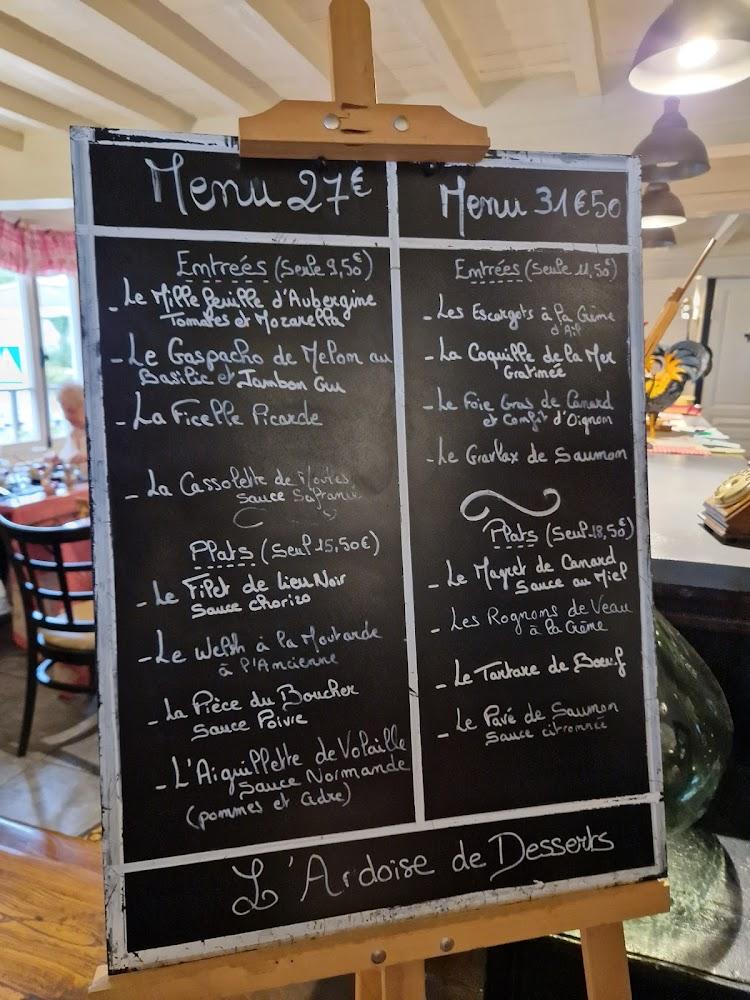 Menu 27€
Entrées (seule 9,50€)
- Le Mille feuille d'Aubergine
Tomates et Mozarella
- Le Gaspacho de Melon au
Basilic et Jambon Cru
- La Ficelle Picarde
- La Cassolette de Moules
Sauce Safranée
Plats (seul 15,50€)
- Le Filet de Lieu Noir
Sauce chorizo
- Le Welsh à la Moutarde
à l'Ancienne
- La Pièce du Boucher
Sauce Poivre
- L'Aiguillette de Volaille
Sauce Normande
(pommes et Cidre)
Menu 31€50
Entrées (seule 11,50€)
- Les Escargots à la Crème
d'Ail
- La Coquille de la Mer
Gratinée
- Le Foie Gras de Canard
et Confit d'Oignon
- Le Gravlax de Saumon
Plats (Seul 18,50€)
- Le Magret de Canard
Sauce au Miel
- Les Rognons de Veau
à la Crème
- Le Tartare de Boeuf
- Le Pavé de Saumon
Sauce citronnée
L'Ardoise de Desserts